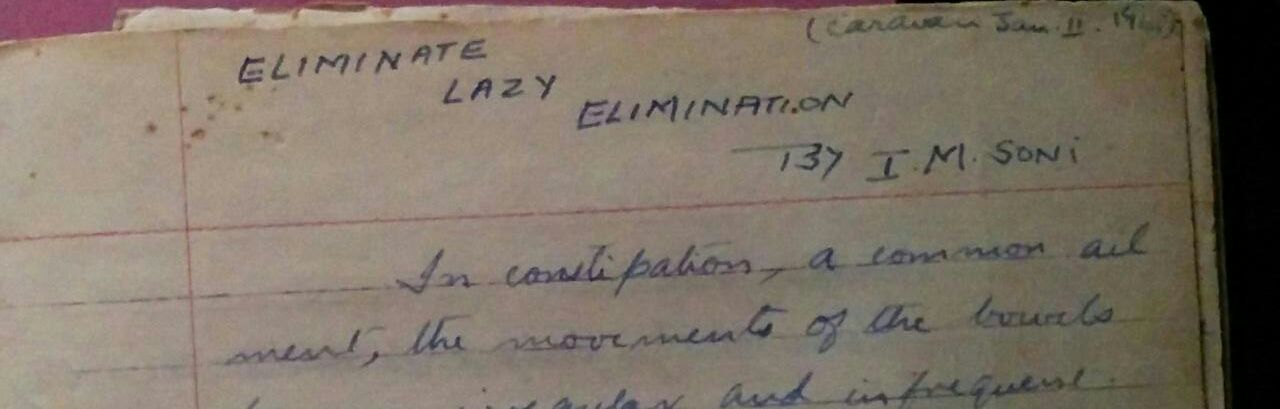 (Caravan Jan. II.
ELIMINATE
LAZY
ELIMINATION
BY I.M. SONI
In constipation, a common ail
ment, the movements of the bowels
and infrequent.